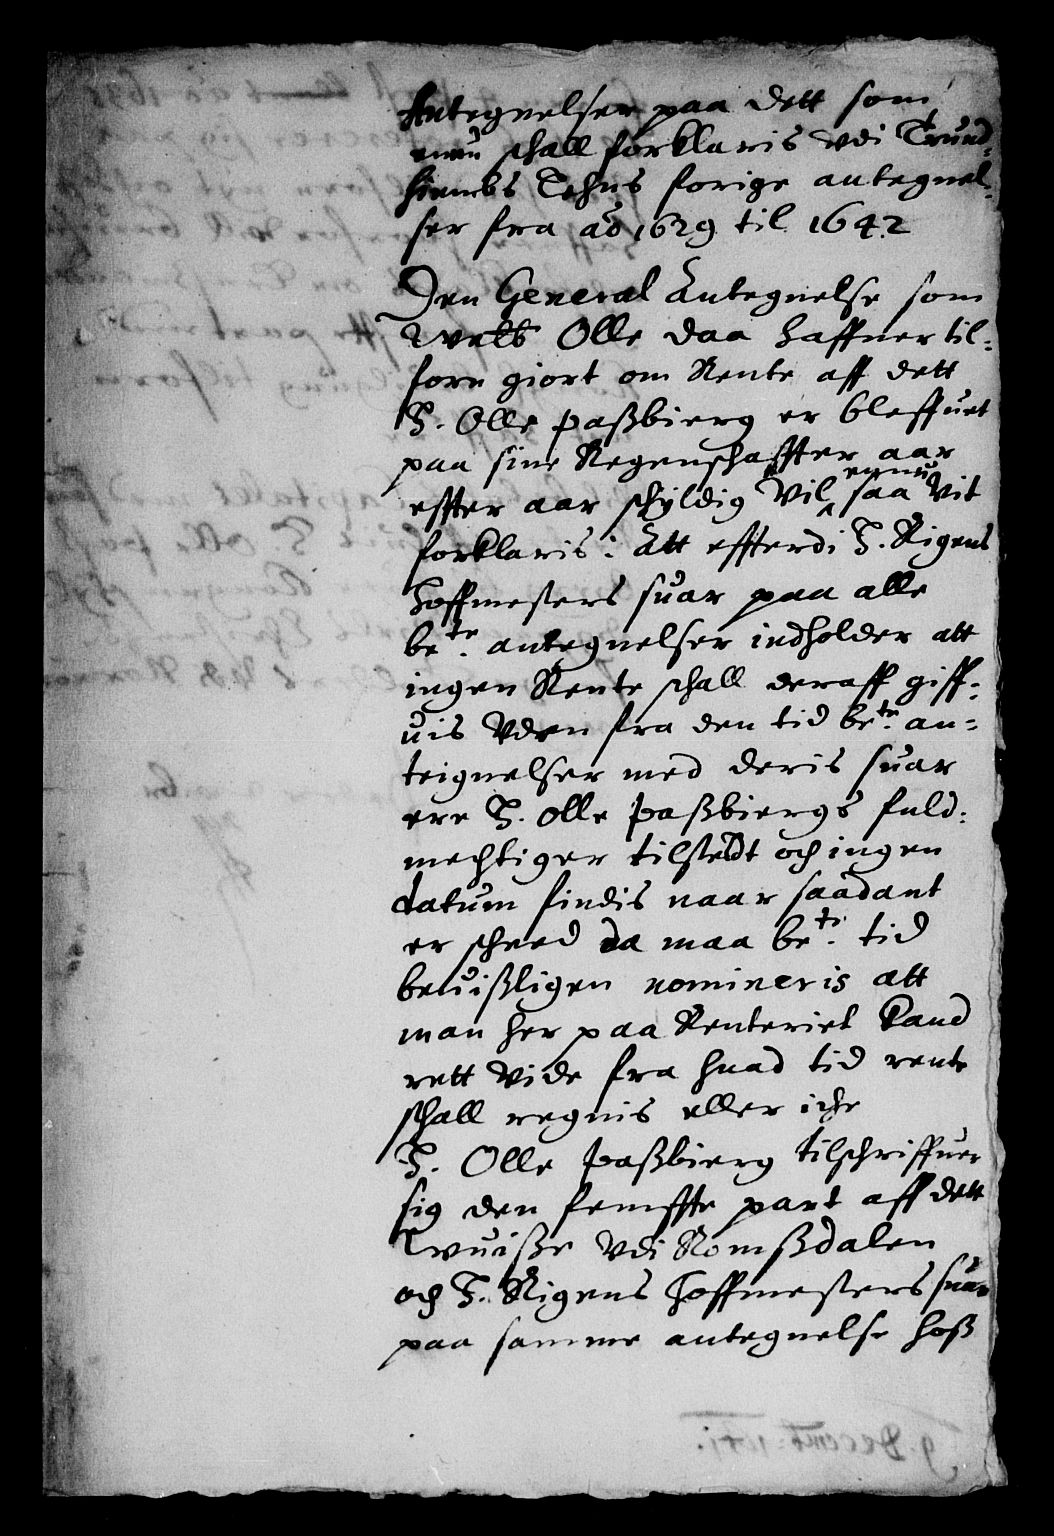 Antegnelser paa dett som
ennu schall forklaris vdi Trund-
hiembs Lehns forige antegnel-
ser fra aō 1629 til 1642
Den General Antegnelse som
Welb Olle daa haffuer til-
forn giort om Rente aff dett
H. Olle paßbierg er bleffuet
paa sine Regenschaffter aar
effter aar schyldig Vil ennu saa Vit
forklaris: Att effterdi H. Rigens
Hoffmesters suar paa alle
bete. antegnelser indholder att
ingen Rente schall deraff giff-
uis Vden fra den tid bete. an-
teignelser med deris suar
ere H. olle paßbiergs fuld-
mechtiger tilstedt och ingen
datum findis naar saadant
er scheed da maa bete. tid
beuißligen nomineris att
man her paa Renteriet kand
rett vide fra huad tid rente
schall regnis eller iche
H. Olle paßbierg tilschriffuer
sig den femffte part aff dett
Wuiße vdi Romßdalen
och H. Rigens Hoffmesters suar
paa samme antegnelse hoß